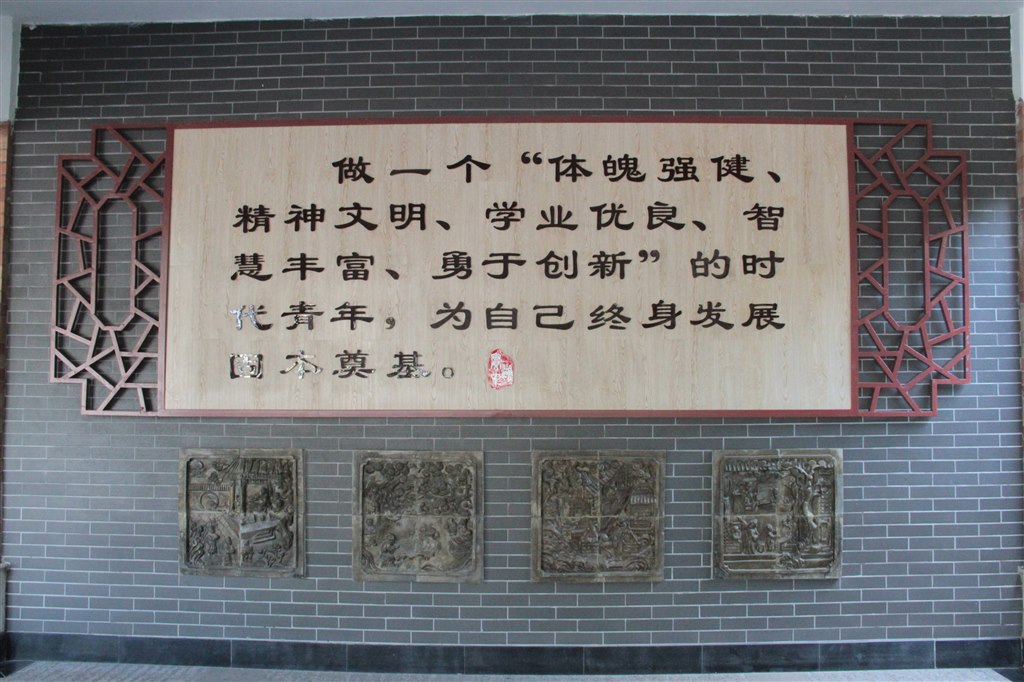 做一个“体魄强健、
精神文明、学业优良、智
慧丰富、勇于创新”的时
代青年，为自己终身发展
固本奠基。